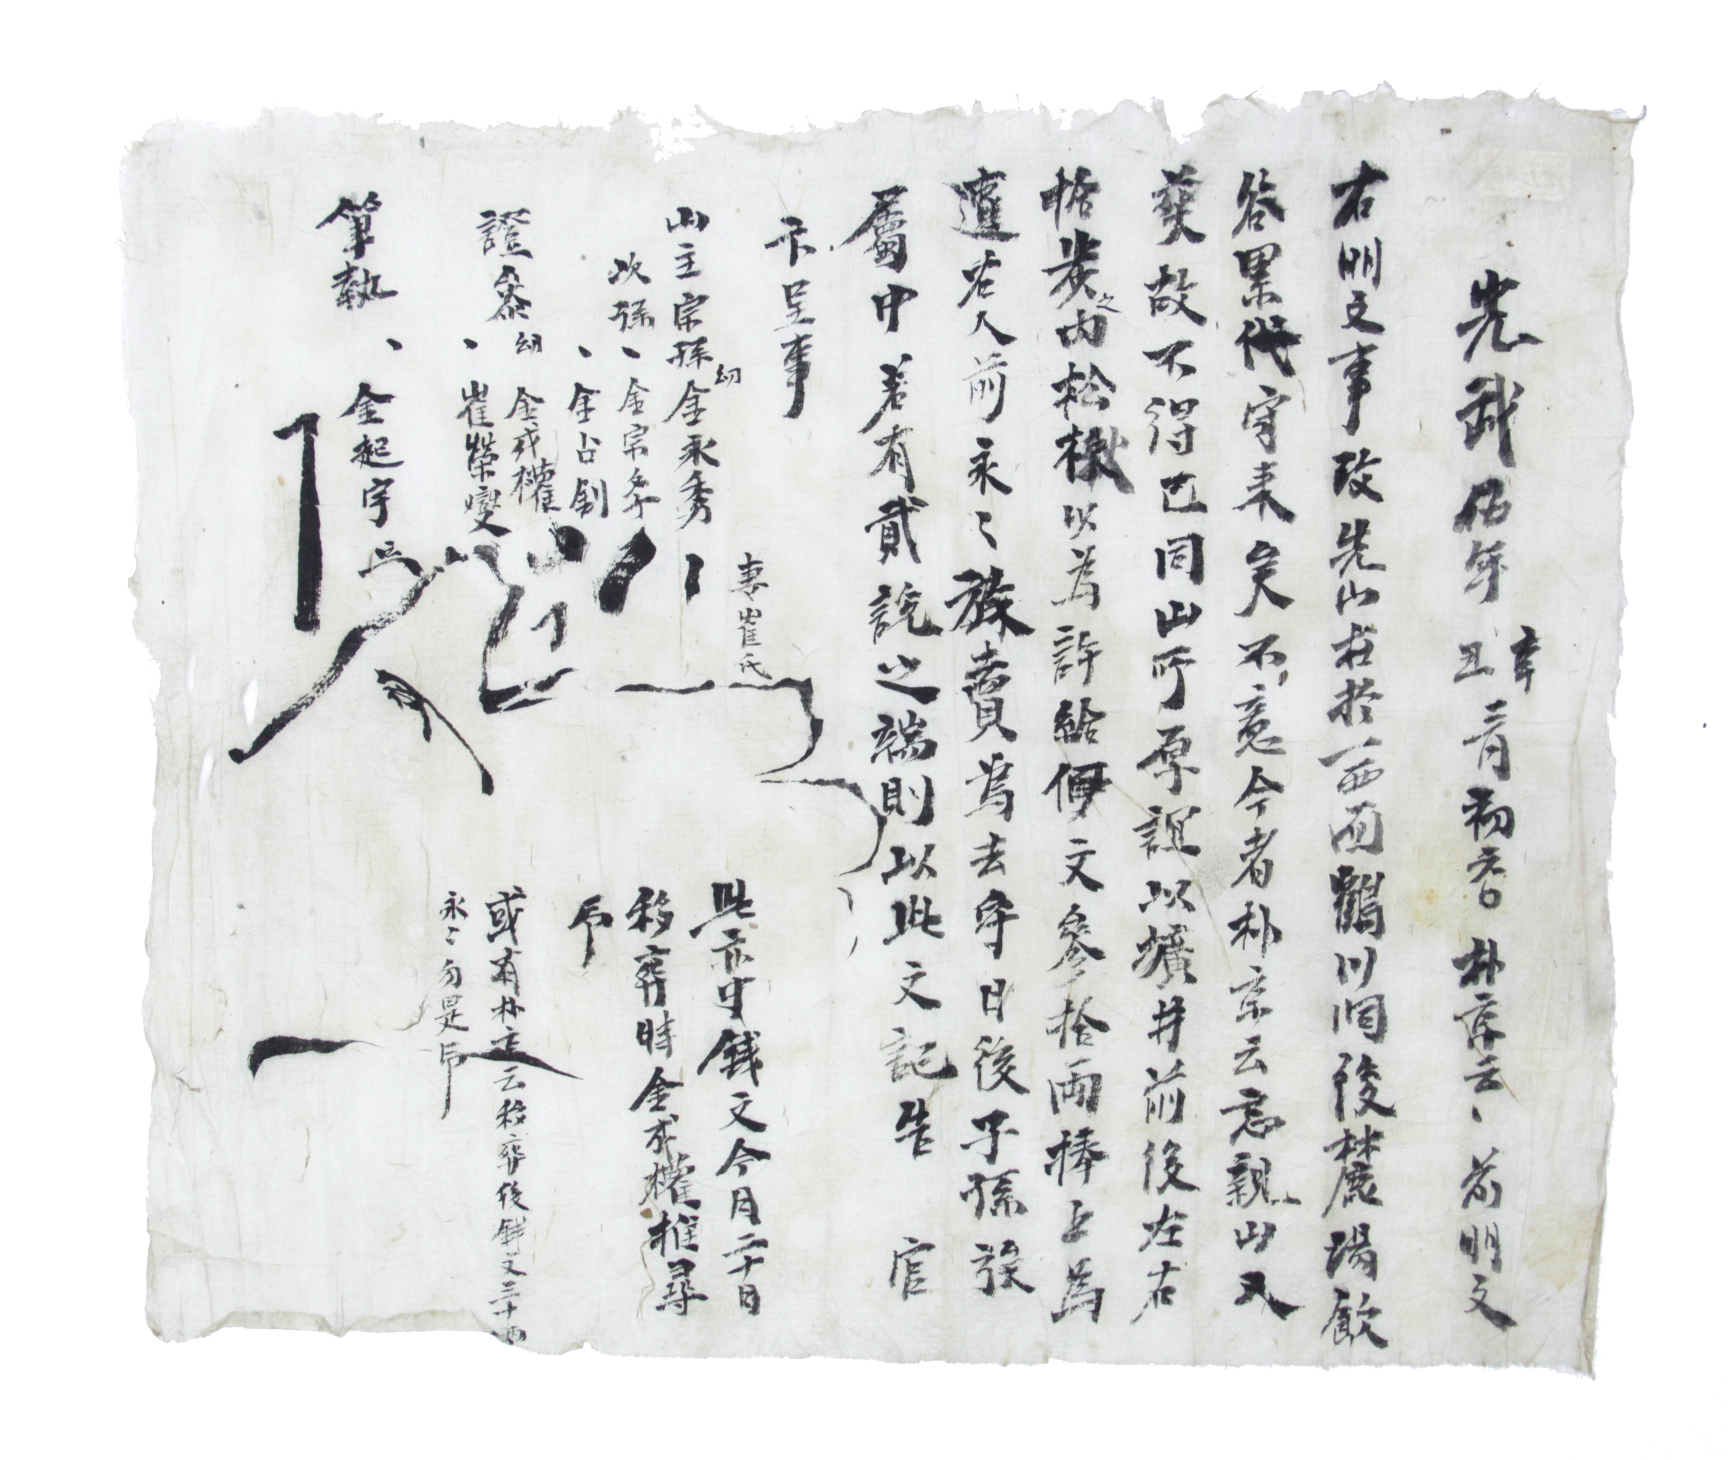 光武伍年辛丑二月初六日朴京云、前明文
右明文事段先山在於西面鶴川洞後麓場歃
谷累代守来矣不意今者朴京云忘親山又
葬故不得已同山所原誼以壙井前後左右
楷養之內松楸以為許給価文參拾兩捧上為
遣右人前永々放賣為去乎日後子孫族
屬中若有貳說之端則以此文記告官
卞呈事
山主宗孫幼金永秀
妻崔氏
次孫、金宗年
、金占釗
證參幼金成權
、崔榮燮
筆執、金起宇
此亦中錢文今月二十日
移葬時金成權推尋
印
或有朴京云移葬後錢文三十兩
永々勿是印